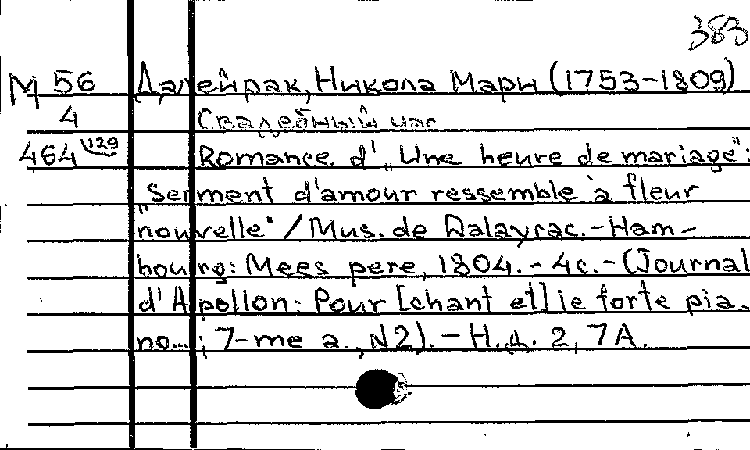 383
М 56 Далейрак, Никола Мари (1753-1809)
4 Свадебный час
464 1129 Romance d'„Une heure de mariage":
„Serment d'amour ressemble à fleur
nouvelle" / Mus. de Dalayrac. - Ham-
bourg: Mees pere, 1804. - 4c. - (Journal
d'Apollon: Pour [chant et] le forte pia-
no...; 7-me a., N2). - Н.д. 2, 7А.